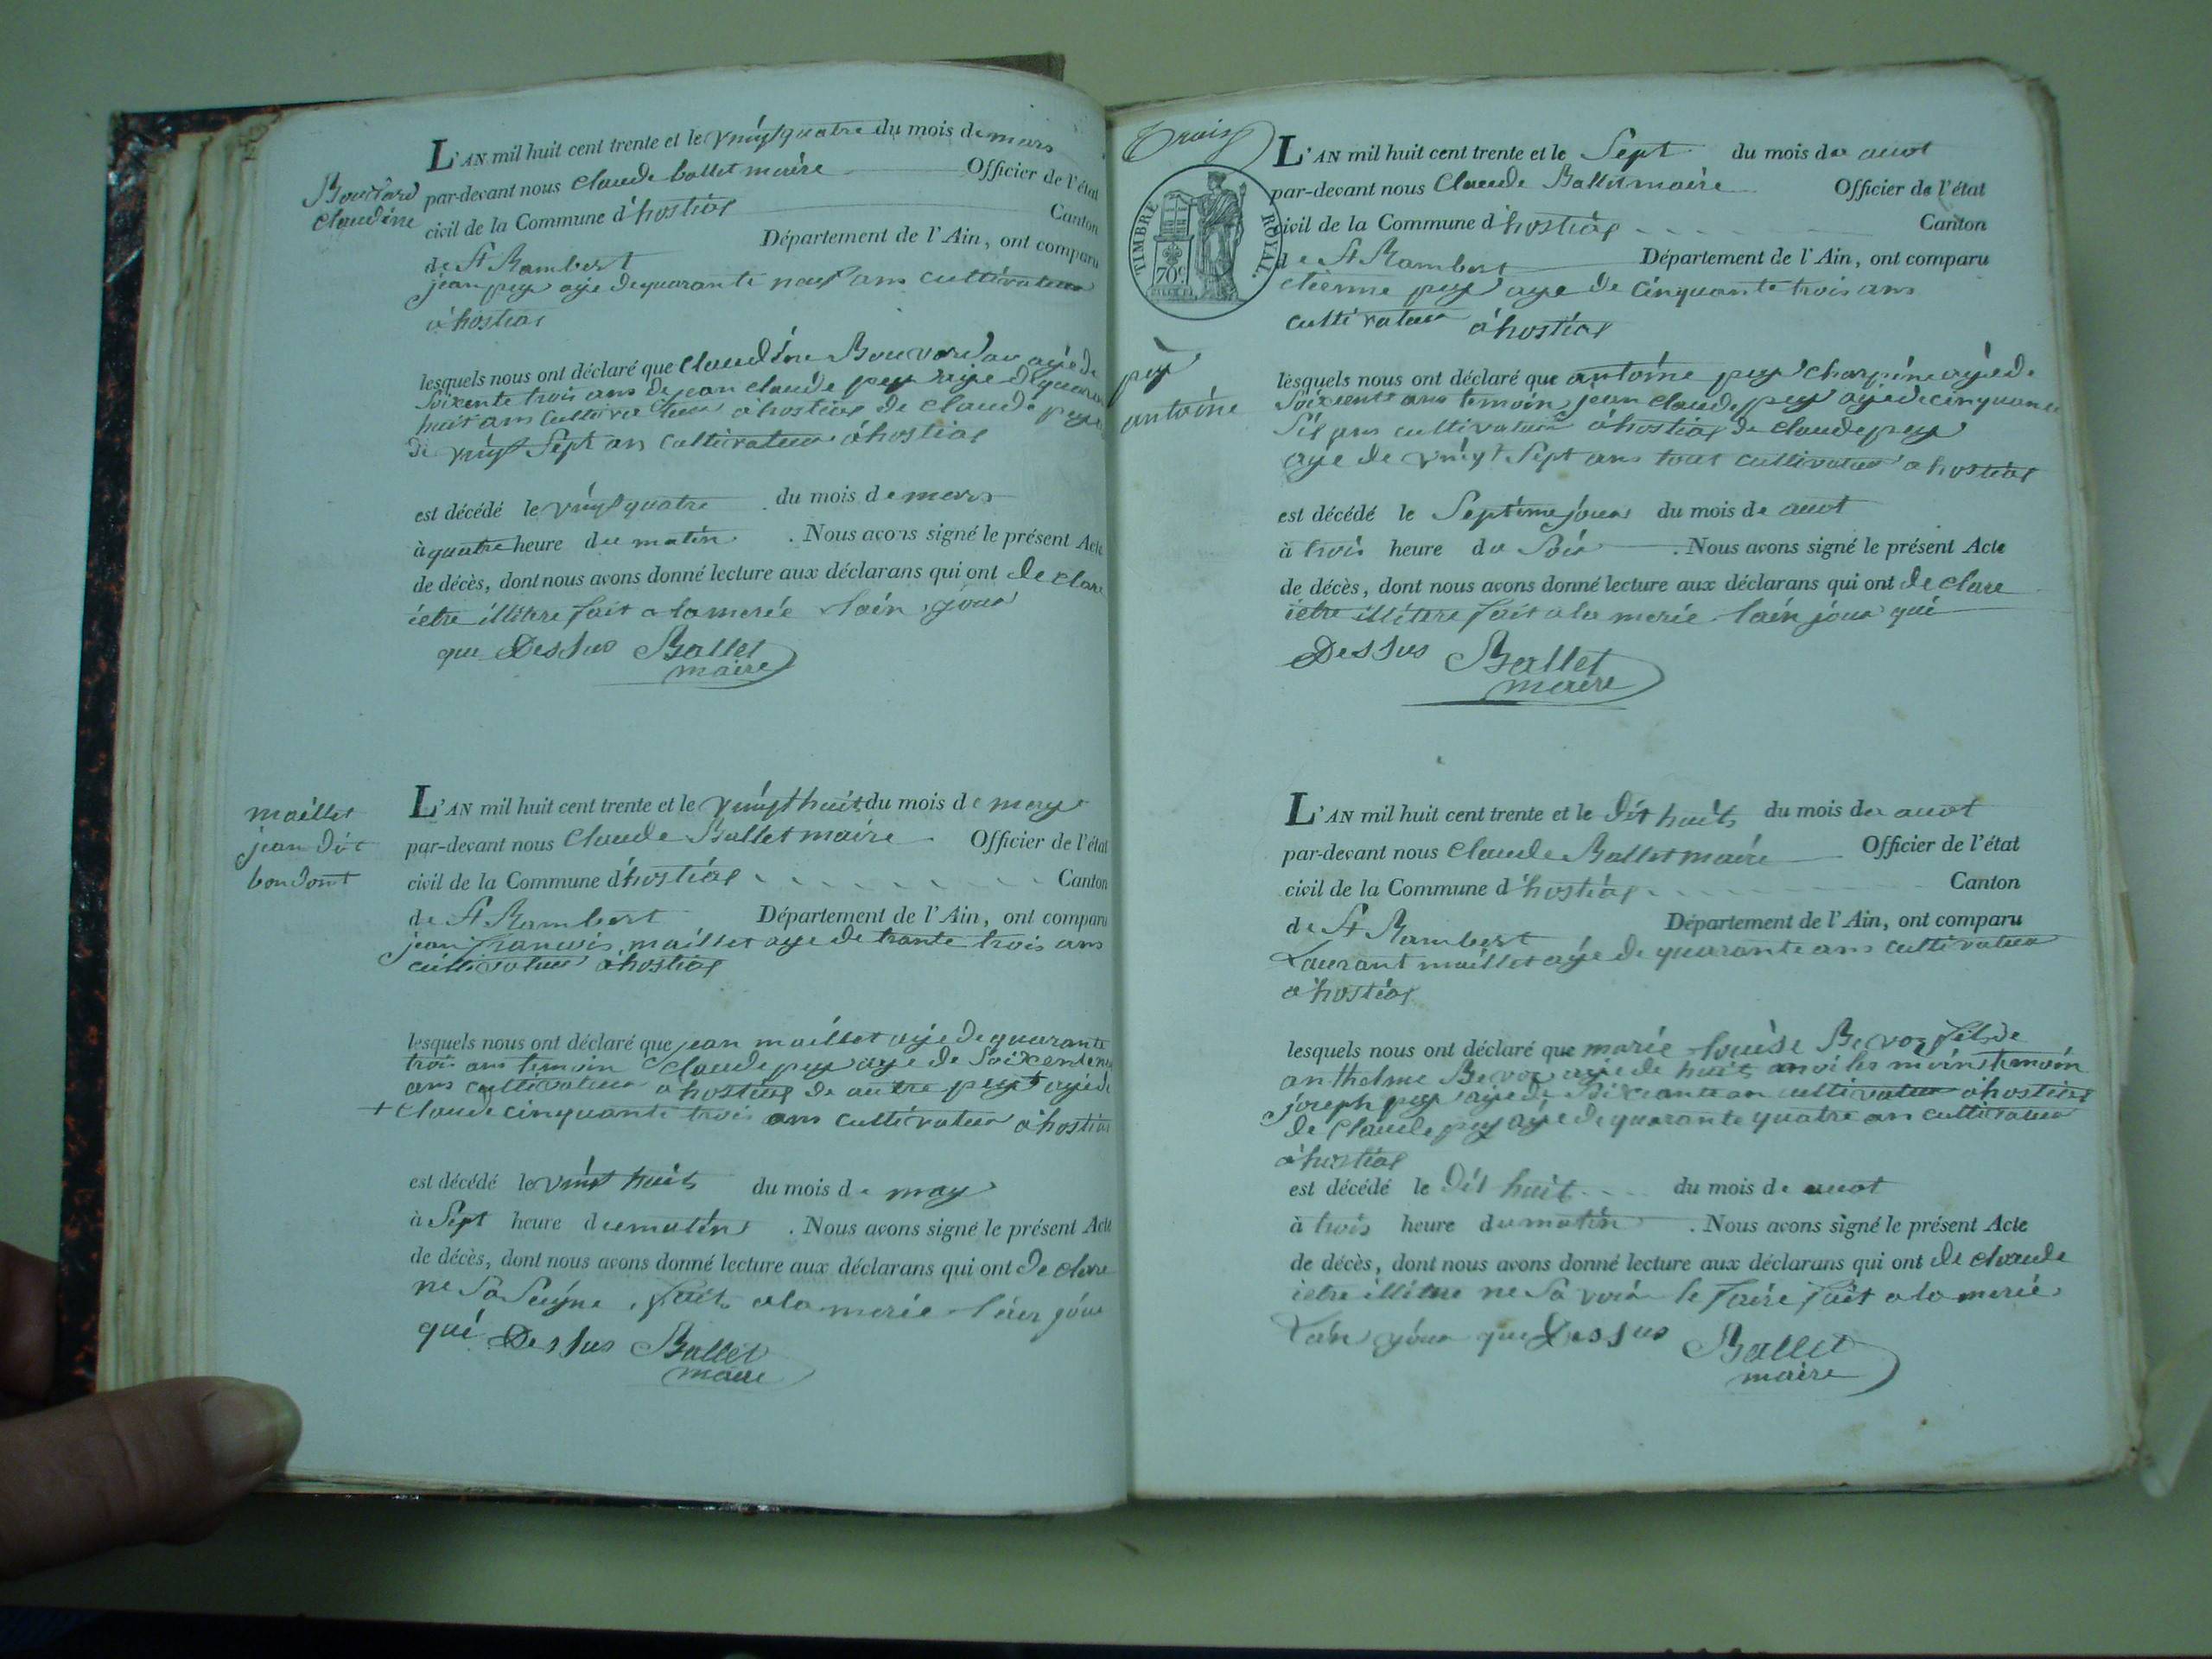 Bouvard
Claudine
L'AN mil huit cent trente et le vingt quatre du mois de mars
par-devant nous Claude ballet maire Officier de l'état
civil de la Commune d'hostias Canton
de St Rambert Département de l'Ain, ont comparu
jean pey aye de quarante neuf ans cultivateur
a hostias
lesquels nous ont déclaré que Claudine Bouvard ayé de
Soixente trois ans de jean claude pey aye de quarante
huit ans cultivateur a hostias de claude pey
de vingt Sept an cultivateur a hostias
est décédé le vingt quatre du mois de mars
à quatre heure du matin . Nous avons signé le présent Acte
de décès, dont nous avons donné lecture aux déclarans qui ont de clare
ietre illitere fait a la merie lain jour
que Dessus Ballet
maire
maillet
jean dit
bondomt
L'AN mil huit cent trente et le vingt huit du mois de may
par-devant nous Claude Ballet maire Officier de l'état
civil de la Commune d'hostias Canton
de St Rambert Département de l'Ain, ont comparu
jean francois maillet aye de trante trois ans
cultivateur a hostias
lesquels nous ont déclaré que jean maillet aye de quarante
trois ans temoin Claude pey aye de Soixente
ans cultivateur a hostias de autre pey aye de
+ Claude cinquante trois ans cultivateur a hostias
est décédé le vint huit du mois de may
à Sept heure du matin . Nous avons signé le présent Acte
de décès, dont nous avons donné lecture aux déclarans qui ont de clare
ne Sa Seigne fait a la merie jour
qui Dessus Ballet
maire
Trois
TIMBRE ROYAL.
70c
L'AN mil huit cent trente et le Sept du mois de auot
par-devant nous Claude Ballet maire Officier de l'état
civil de la Commune d'hostias Canton
de St Rambert Département de l'Ain, ont comparu
etienne pey aye de cinquante trois ans
cultivateur a hostias
pey
antoine
lesquels nous ont déclaré que antoine pey charpine ayé de
Soixente ans temoin jean claude pey aye de cinquante
Sis ans cultivateur a hostias de claude pey
aye de vingt Sept ans tout cultivateur a hostias
est décédé le Septime jour du mois de auot
à trois heure du Soir . Nous avons signé le présent Acte
de décès, dont nous avons donné lecture aux déclarans qui ont de clare
ietre illitere fait a la merie lain jour qui
Dessus Ballet
maire
L'AN mil huit cent trente et le dit huit du mois de auot
par-devant nous Claude Ballet maire Officier de l'état
civil de la Commune d'hostias Canton
de St Rambert Département de l'Ain, ont comparu
Laurant maillet aye de quarante ans cultivateur
a hostias
lesquels nous ont déclaré que marie louise Bevoz fil de
anthelme Bevoz aye de huit temoin
joseph pey aye de Sixante an cultivateur a hostias
de Claude pey ayé de quarante quatre an cultivateur
a hostias
est décédé le dit huit du mois de auot
à trois heure du matin . Nous avons signé le présent Acte
de décès, dont nous avons donné lecture aux déclarans qui ont de claude
ietre illitere ne Sa voir le faire fait a la merie
Lain jour que Dessus Ballet
maire